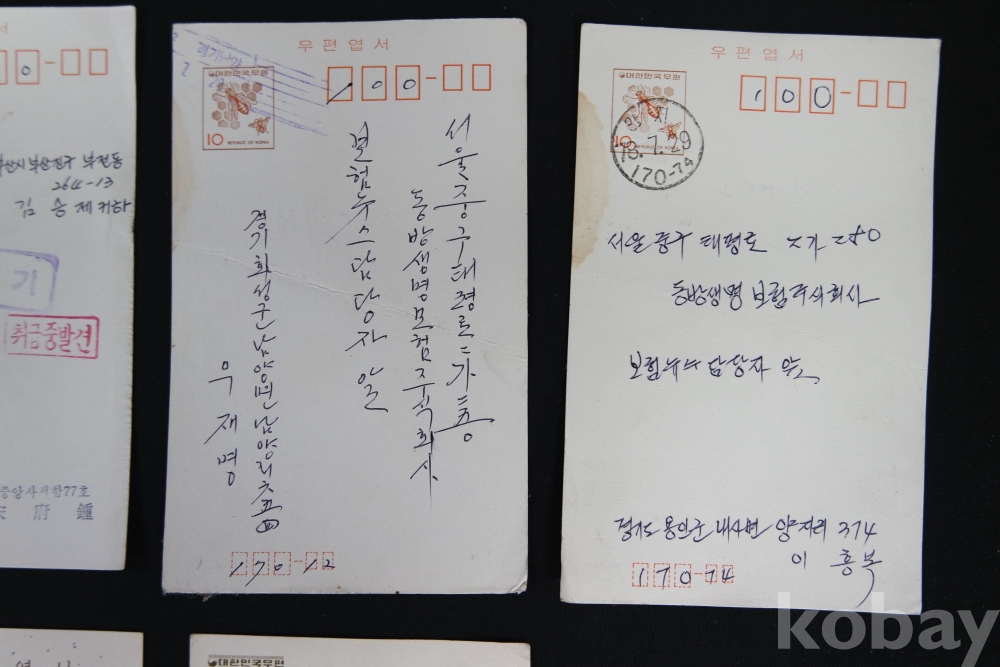 서
0
부산시 부산진구 부전동
264-13
김 송 제 귀하
기
취금중발견
중앙사서함77호
府 鍾
우편엽서
대한민국우편
10
REPUBLIC OF KOREA
100-
서울중구태평로二가
동방생명보험주식회사
보험뉴스담당자 앞
경기화성군남양면남양리
우재명
170-12
우편엽서
대한민국우편
10
양지
78.7.29
170-74
100-
서울 중구 태평로 2가 250
동방생명 보험주식회사
보험뉴스 담당자 앞
경기도 용인군 내사면 양지리 374
이 흥복
170-74
엽서
대한민국우편
kobay